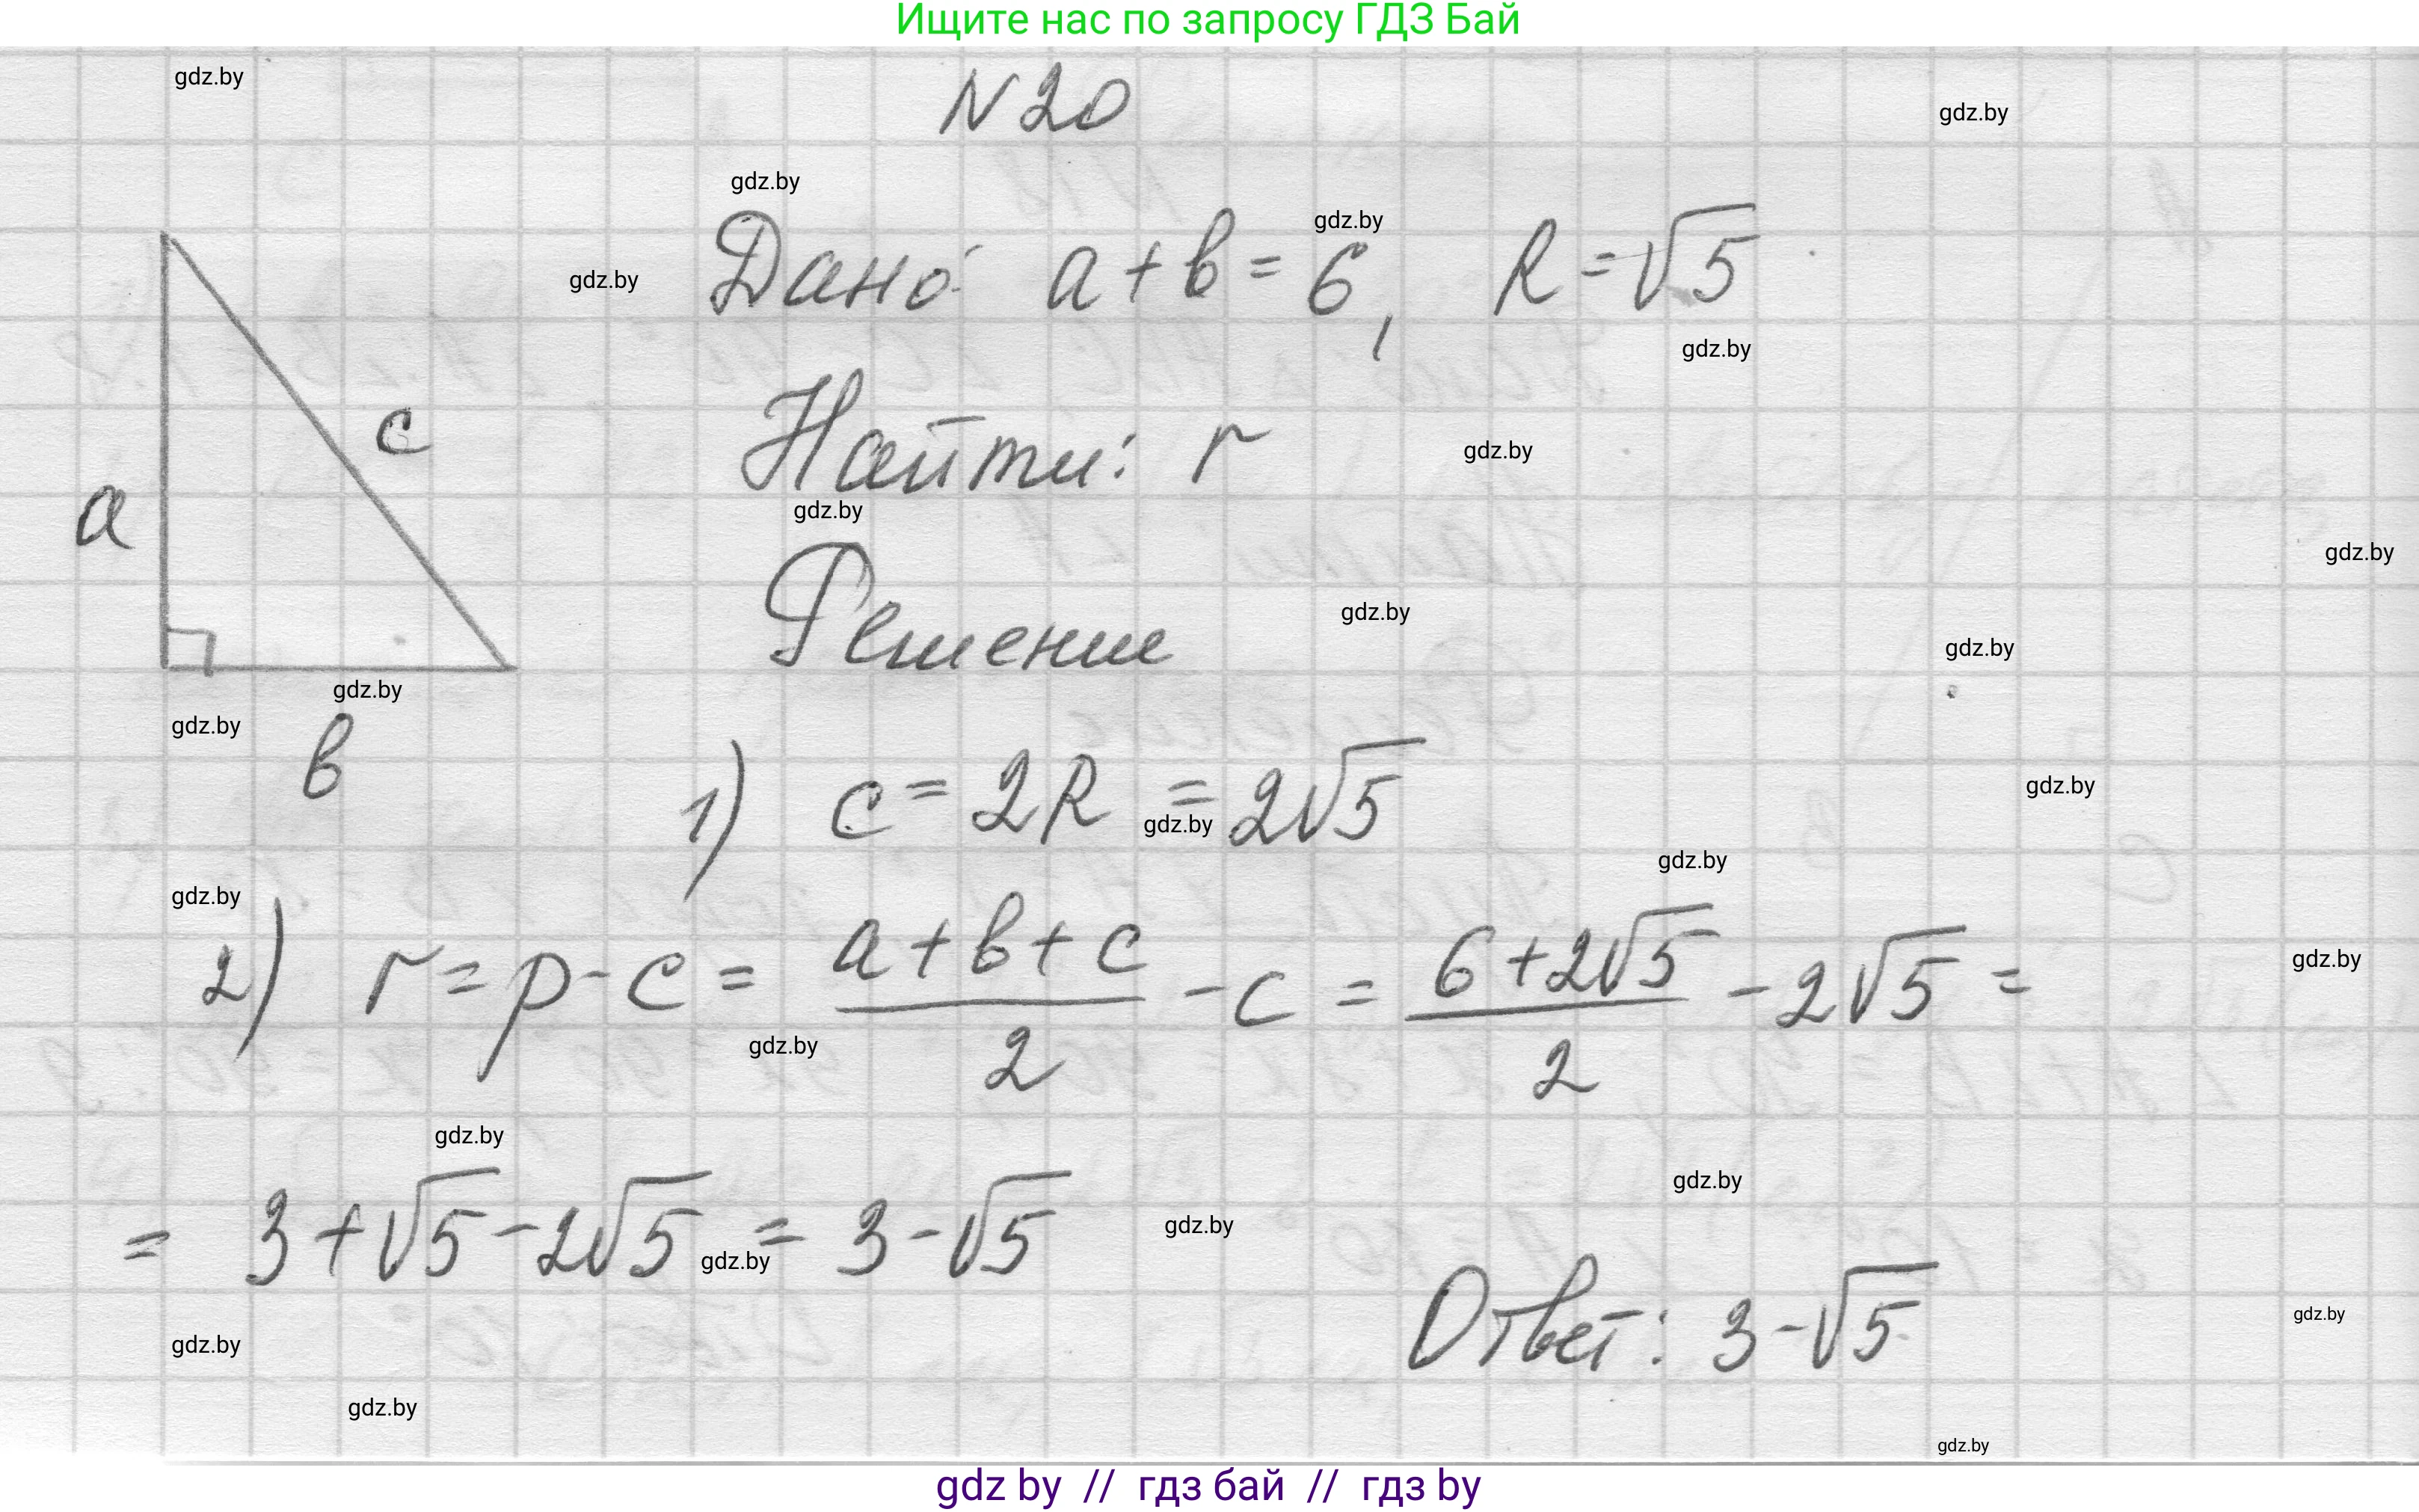 Ищите нас по запросу ГДЗ Бай
gdz.by
N 20
gdz.by
gdz.by
gdz.by
gdz.by
Дано: a + b = 6, R = √5
gdz.by
c
Найти: r
gdz.by
a
gdz.by
gdz.by
Решение
gdz.by
gdz.by
gdz.by
gdz.by
b
1) c = 2R = 2√5
gdz.by
gdz.by
gdz.by
gdz.by
2) r = p - c = (a + b + c)/2 - c = (6 + 2√5)/2 - 2√5 =
gdz.by
gdz.by
gdz.by
gdz.by
= 3 + √5 - 2√5 = 3 - √5
gdz.by
gdz.by
Ответ: 3 - √5
gdz.by
gdz.by
gdz.by
gdz.by
gdz by // гдз бай // гдз by